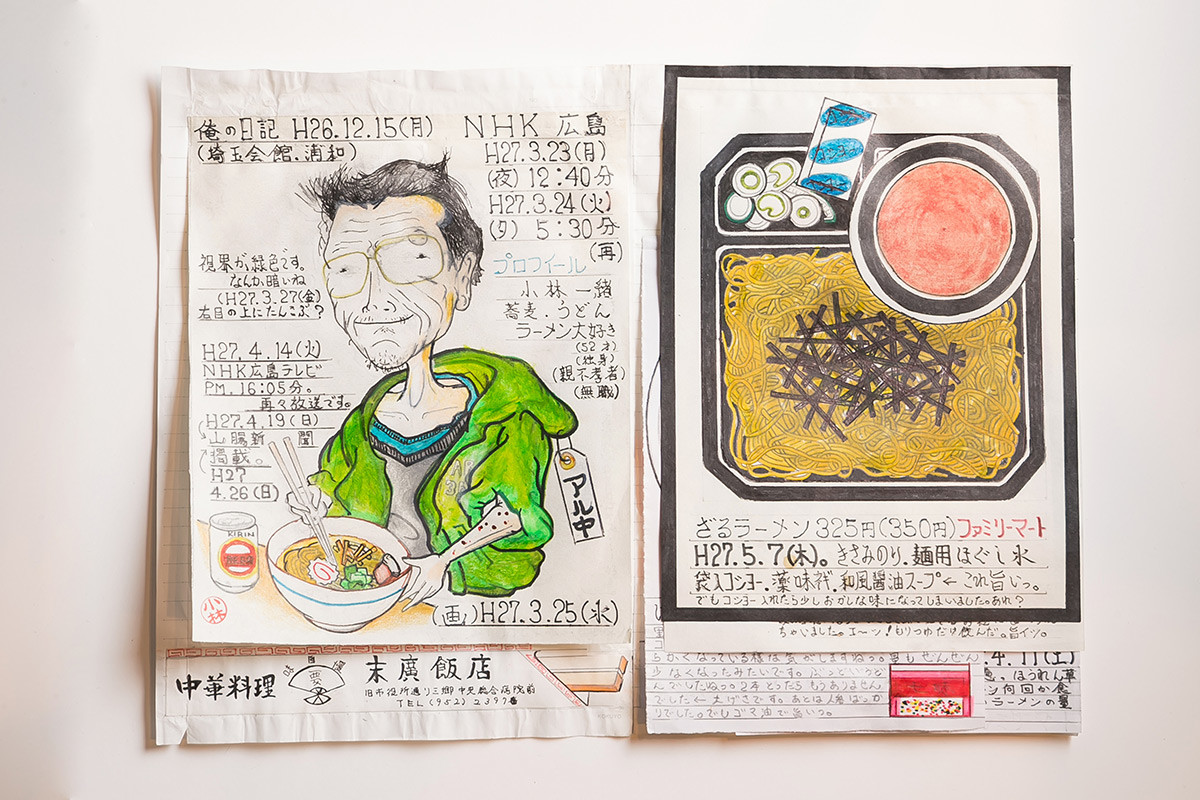 俺の日記 H26.12.15(月)
(埼玉会館.浦和)
NHK 広島
H27.3.23(月)
(夜) 12:40分
H27.3.24(火)
(夕) 5:30分
(再)
プロフィール
小林一緒
蕎麦.うどん
ラーメン大好き
(52才)
(独身)
(親不孝者)
(無職)
視界が緑色です。
なんか暗いね
(H27.3.27(金)
右目の上にたんこぶ?
H27.4.14(火)
NHK広島テレビ
PM.16:05分。
再々放送です。
H27.4.19(日)
山陽新聞
掲載。
H27
4.26(日)
アル中
KIRIN
小林
(画)H27.3.25(水)
中華料理
要
末廣飯店
旧市役所通り三郷中央総合病院前
TEL(952)2397番
コショー
ざるラーメン 325円(350円)ファミリーマート
H27.5.7(木)。きざみのり.麺用ほぐし水
袋入コショー.薬味ネギ.和風醤油スープ←これ旨いっ。
でもコショー入れたら少しおかしな味になってしまいました。あれ?
ちゃいました。エーッ!もりつゆだけ飲んだ。旨イッ。
少なくなったみたいです。
んでしたねっ。2本とったらもうありません
でした←大げさです。あとは人参ばっか
りでした。でもゴマ油で旨いっ。
4.11(土)
、ほうれん草
ン何回か食
ラーメンの量